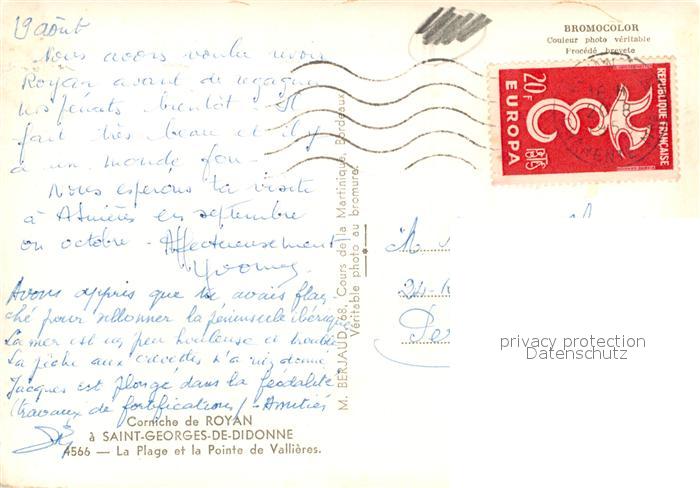 19 août
Nous avons voulu revoir
Royan avant de regagner
nos pénats bientôt. Il
fait très beau et il y
a un monde fou -
Nous espérons ta visite
à Asnières en septembre
ou octobre - Affectueusement
Yvonne
Avons appris que tu avais flan-
ché pour sillonner la péninsule ibérique
La mer est un peu houleuse et trouble
La pêche aux crevettes n'a rien donné
Jacques est plongé dans la féodalité
(travaux de fortifications) - Amitiés
Corniche de ROYAN
à SAINT-GEORGES-DE-DIDONNE
4566 — La Plage et la Pointe de Vallières.
M. BERJAUD, 68, Cours de la Martinique, Bordeaux
Véritable photo au bromure
BROMOCOLOR
Couleur photo véritable
Procédé breveté
REPUBLIQUE FRANÇAISE
20F
EUROPA
POSTES
M
24
privacy protection
Datenschutz